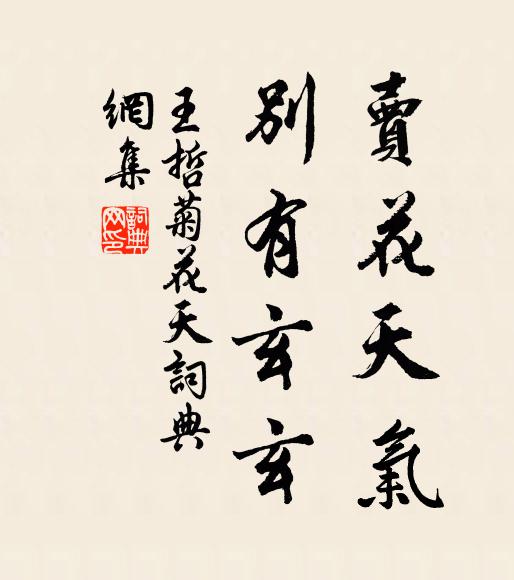 賣花天氣
別有玄玄
王哲菊花天詞典
網集
詞典網印